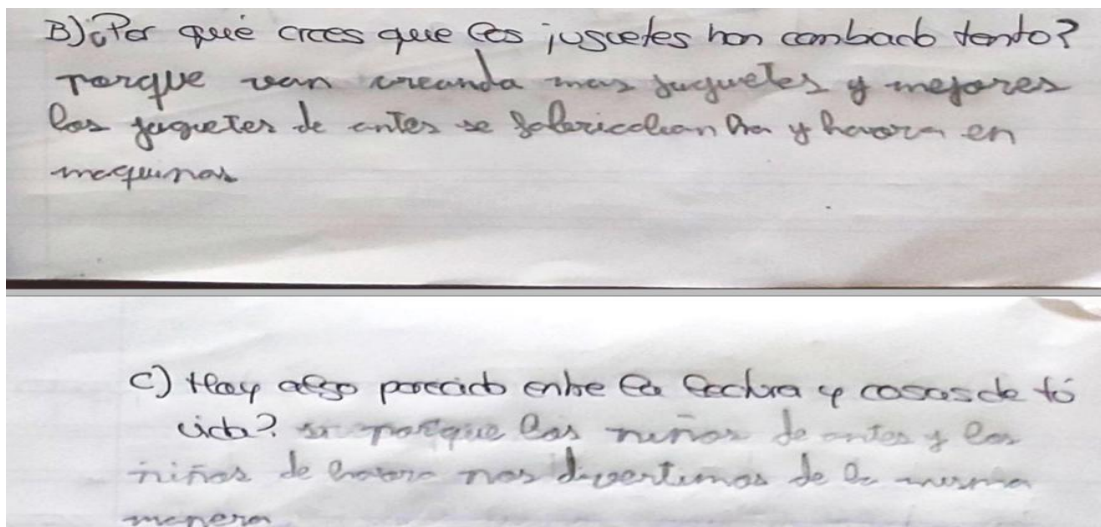 B) ¿Por qué crees que los juguetes han cambiado tanto?
Porque van creando mas juguetes y mejores
los juguetes de antes se fabricaban y haora en
maquinas
C) Hay algo parecido entre la lectura y cosas de tú
vida? si porque los niños de antes y los
niños de haora nos divertimos de la misma
manera